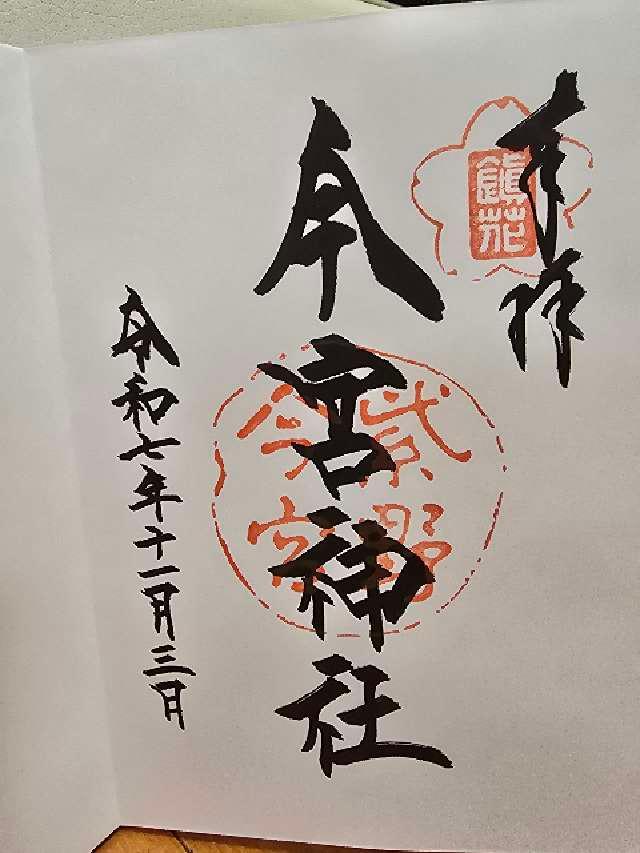 奉拝
鎮花
今宮神社
紫野
今宮
令和七年十一月三日